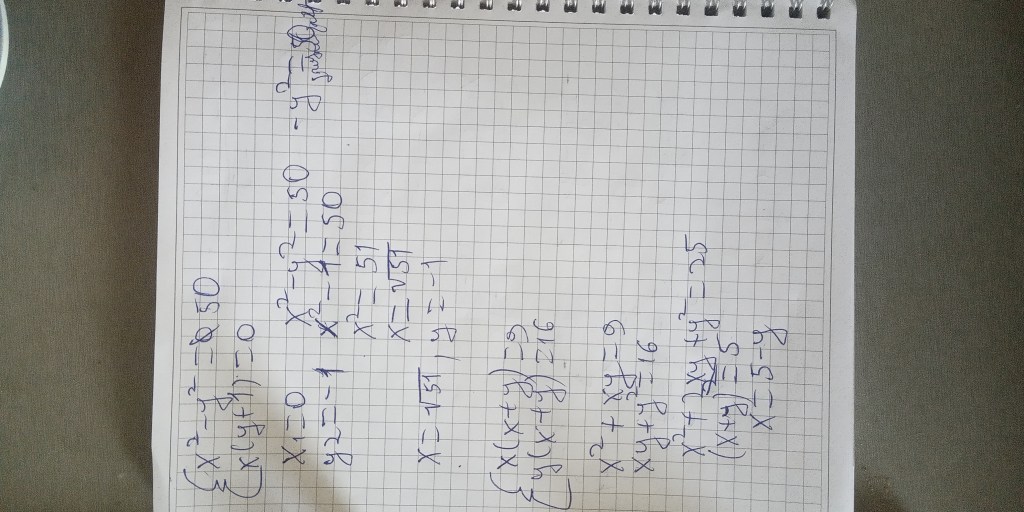 x² - y² = 50
x(y+1) = 0
x1 = 0 x² - y² = 50 - y² =
y2 = -1 x² - 1 = 50
x² = 51
x = √51
x = √51, y = -1
x(x+y) = 9
y(x+y) = 16
x² + xy = 9
xy + y² = 16
x² + 2xy + y² = 25
(x+y) = 5
x = 5 - y